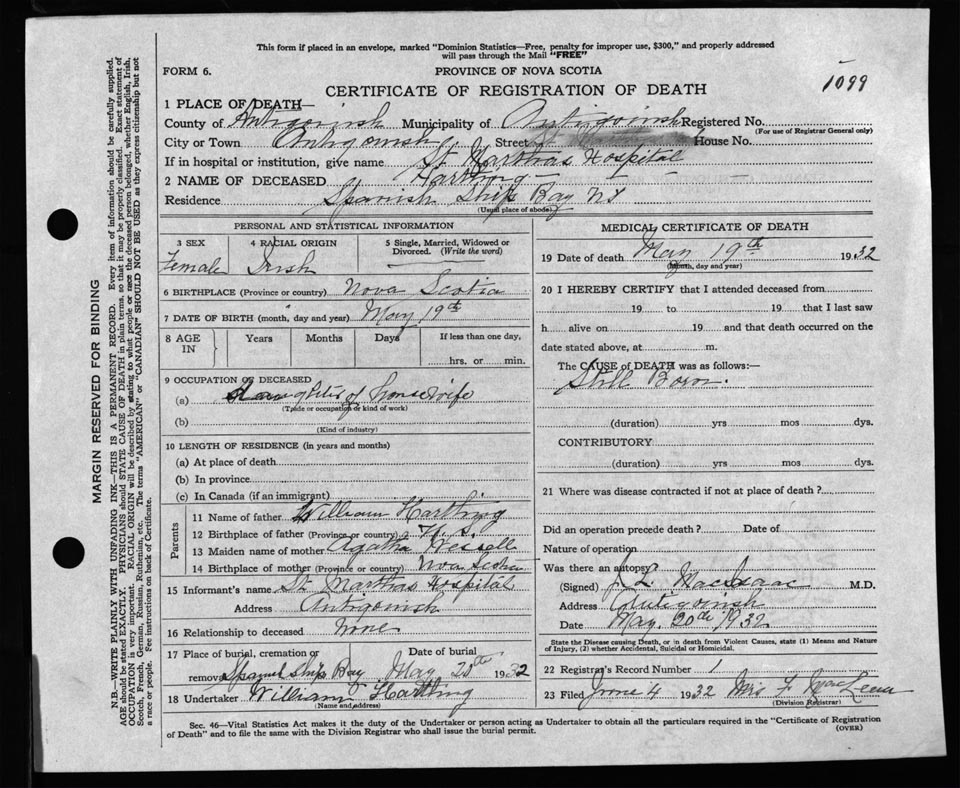 This form if placed in an envelope, marked "Dominion Statistics—Free, penalty for improper use, $300," and properly addressed
will pass through the Mail "FREE"
FORM 6.
PROVINCE OF NOVA SCOTIA
1099
CERTIFICATE OF REGISTRATION OF DEATH
1 PLACE OF DEATH—
County of Antigonish Municipality of Antigonish Registered No.
(For use of Registrar General only)
City or Town Antigonish Street House No.
If in hospital or institution, give name St Marthas Hospital
2 NAME OF DECEASED Hartling — — — —
Residence Spanish Ship Bay NS
(Usual place of abode)
PERSONAL AND STATISTICAL INFORMATION
3 SEX 4 RACIAL ORIGIN 5 Single, Married, Widowed or Divorced. (Write the word)
Female Irish
6 BIRTHPLACE (Province or country) Nova Scotia
7 DATE OF BIRTH (month, day and year) May 19th
8 AGE IN Years Months Days If less than one day,
hrs. or min.
9 OCCUPATION OF DECEASED
(a) daughter of housewife
(Trade or occupation or kind of work)
(b)
(Kind of industry)
10 LENGTH OF RESIDENCE (in years and months)
(a) At place of death
(b) In province
(c) In Canada (if an immigrant)
Parents
11 Name of father William Hartling
12 Birthplace of father (Province or country) N.S.
13 Maiden name of mother Agatha
14 Birthplace of mother (Province or country) Nova Scotia
15 Informant's name St Marthas Hospital
Address Antigonish
16 Relationship to deceased None
17 Place of burial, cremation or Date of burial
removal Spanish Ship Bay May 20th 1932
18 Undertaker William Hartling
(Name and address)
MEDICAL CERTIFICATE OF DEATH
19 Date of death May 19th 1932
(Month, day and year)
20 I HEREBY CERTIFY that I attended deceased from
19 to 19 that I last saw
h alive on 19 and that death occurred on the
date stated above, at m.
The CAUSE of DEATH was as follows:—
Still Born.
(duration) yrs mos dys.
CONTRIBUTORY
(duration) yrs mos dys.
21 Where was disease contracted if not at place of death?
Did an operation precede death? Date of
Nature of operation
Was there an autopsy?
(Signed) MacIsaac M.D.
Address Antigonish
Date May. 20th 1932
State the Disease causing Death, or in death from Violent Causes, state (1) Means and Nature
of Injury, (2) whether Accidental, Suicidal or Homicidal.
22 Registrar's Record Number 1
23 Filed June 4 1932 Mrs F MacLean
(Division Registrar)
Sec. 46—Vital Statistics Act makes it the duty of the Undertaker or person acting as Undertaker to obtain all the particulars required in the "Certificate of Registration
of Death" and to file the same with the Division Registrar who shall issue the burial permit.
(OVER)
MARGIN RESERVED FOR BINDING
N.B.—WRITE PLAINLY WITH UNFADING INK—THIS IS A PERMANENT RECORD. Every item of information should be carefully supplied.
AGE should be stated EXACTLY. PHYSICIANS should STATE CAUSE OF DEATH in plain terms, so that it may be properly classified. Exact statement of
OCCUPATION is very important. RACIAL ORIGIN will be described by stating to what people or race the deceased person belonged, whether English, Irish,
Scotch, French, German, Russian, Ruthenian, etc. The terms "AMERICAN" or "CANADIAN" SHOULD NOT BE USED as they express citizenship but not
a race or people. Fee instructions on back of Certificate.